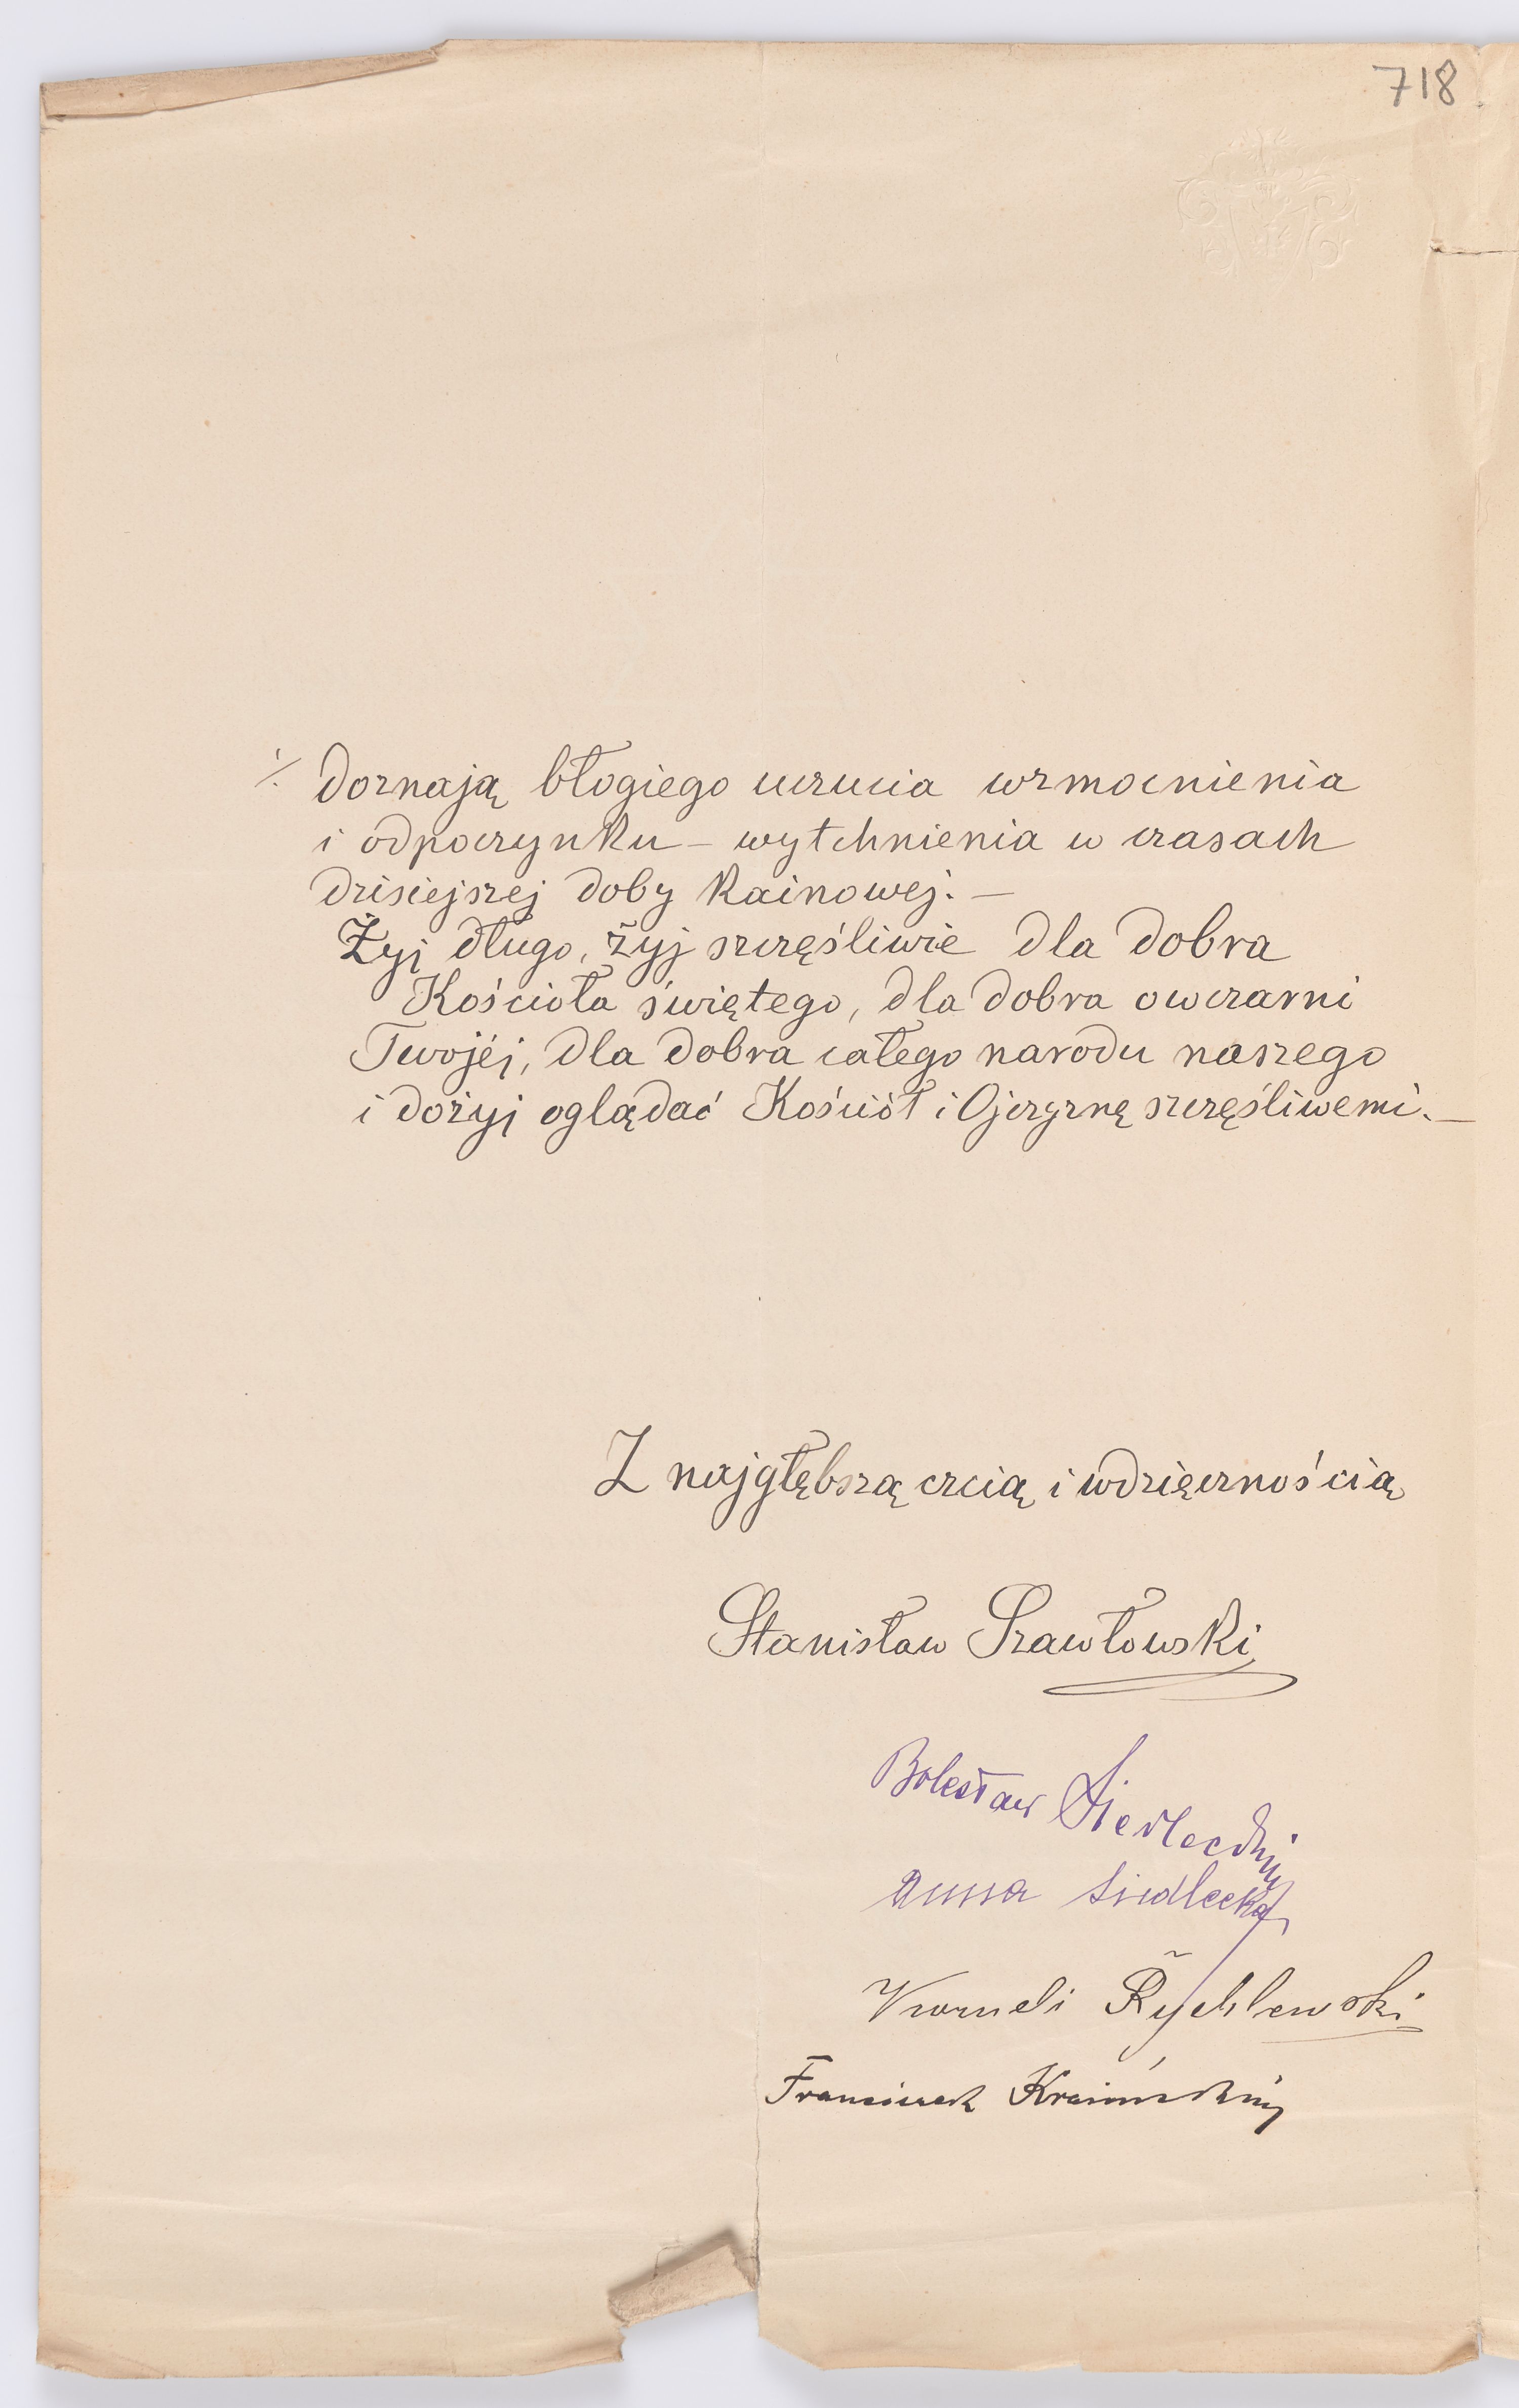 718
⁒ doznają błogiego uczucia wzmocnienia
i odpoczynku – wytchnienia w czasach
dzisiejszej doby Kainowej. –
Żyj długo, żyj szczęśliwie dla dobra
Kościoła świętego, dla dobra owczarni
Twojéj, dla dobra całego narodu naszego
i dożyj oglądać Kościół i Ojczyznę szczęśliwemi. –
Z najgłębszą czcią i wdzięcznością
Stanisław Szawłowski
Bolesław Siedlecki
Anna Siedlecka
Korneli Rychlewski
Franciszek Krasiński